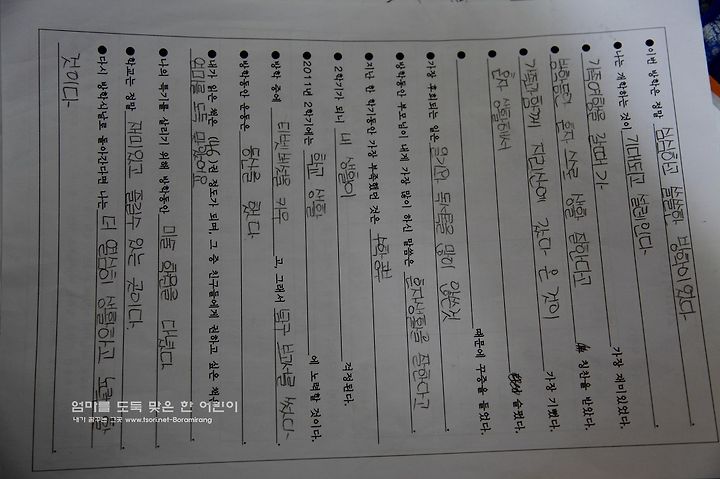 ● 이번 방학은 정말 심심하고 쓸쓸한 방학이었다.
● 나는 개학하는 것이 기대되고 설레인다.
● 가족여행을 가 가장 재미있었다.
● 방학동안 혼자 스스로 생활 잘한다고 칭찬을 받았다.
● 가족과함께 지리산에 갔다 온 것이 가장 기뻤다.
● 혼자 생활해서 슬펐다.
● 때문에 꾸중을 들었다.
● 가장 후회되는 일은 일기와 독서록을 많이 않쓴것
● 방학동안 부모님이 내게 가장 많이 하신 말씀은 혼자생활을 잘한다고
● 지난 한 학기동안 가장 부족했던 것은 수학과
● 2학기가 되니 내 생활이 걱정된다.
● 2011년 2학기에는 학교 생활 에 노력할 것이다.
● 방학 중에 키우 고, 그래서 탐구 보고서를 썼다.
● 방학동안 운동은 등산을 했다.
● 내가 읽은 책은 (45)권 정도가 되며, 그 중 친구들에게 권하고 싶은 책은
엄마를 도둑 맞았어요
● 나의 특기를 살리기 위해 방학동안 미술 학원을 다녔다.
● 학교는 정말 재미있고 즐길수 있는 곳이다.
● 다시 방학식날로 돌아간다면 나는 더 열심히 생활하고 노력할
것이다.
엄마를 도둑 맞은 한 어린이
내가 꿈꾸는 그곳 www.tsori.net-Boramirang